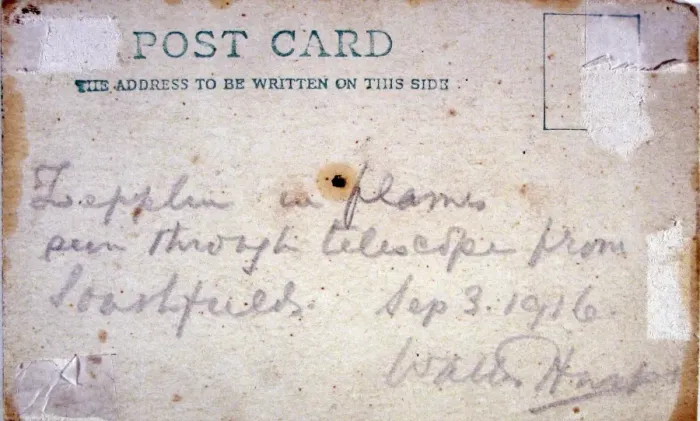 POST CARD
THE ADDRESS TO BE WRITTEN ON THIS SIDE.
Zepplin in flames
seen through telescope from
Southfields. Sep 3. 1916.
Walter